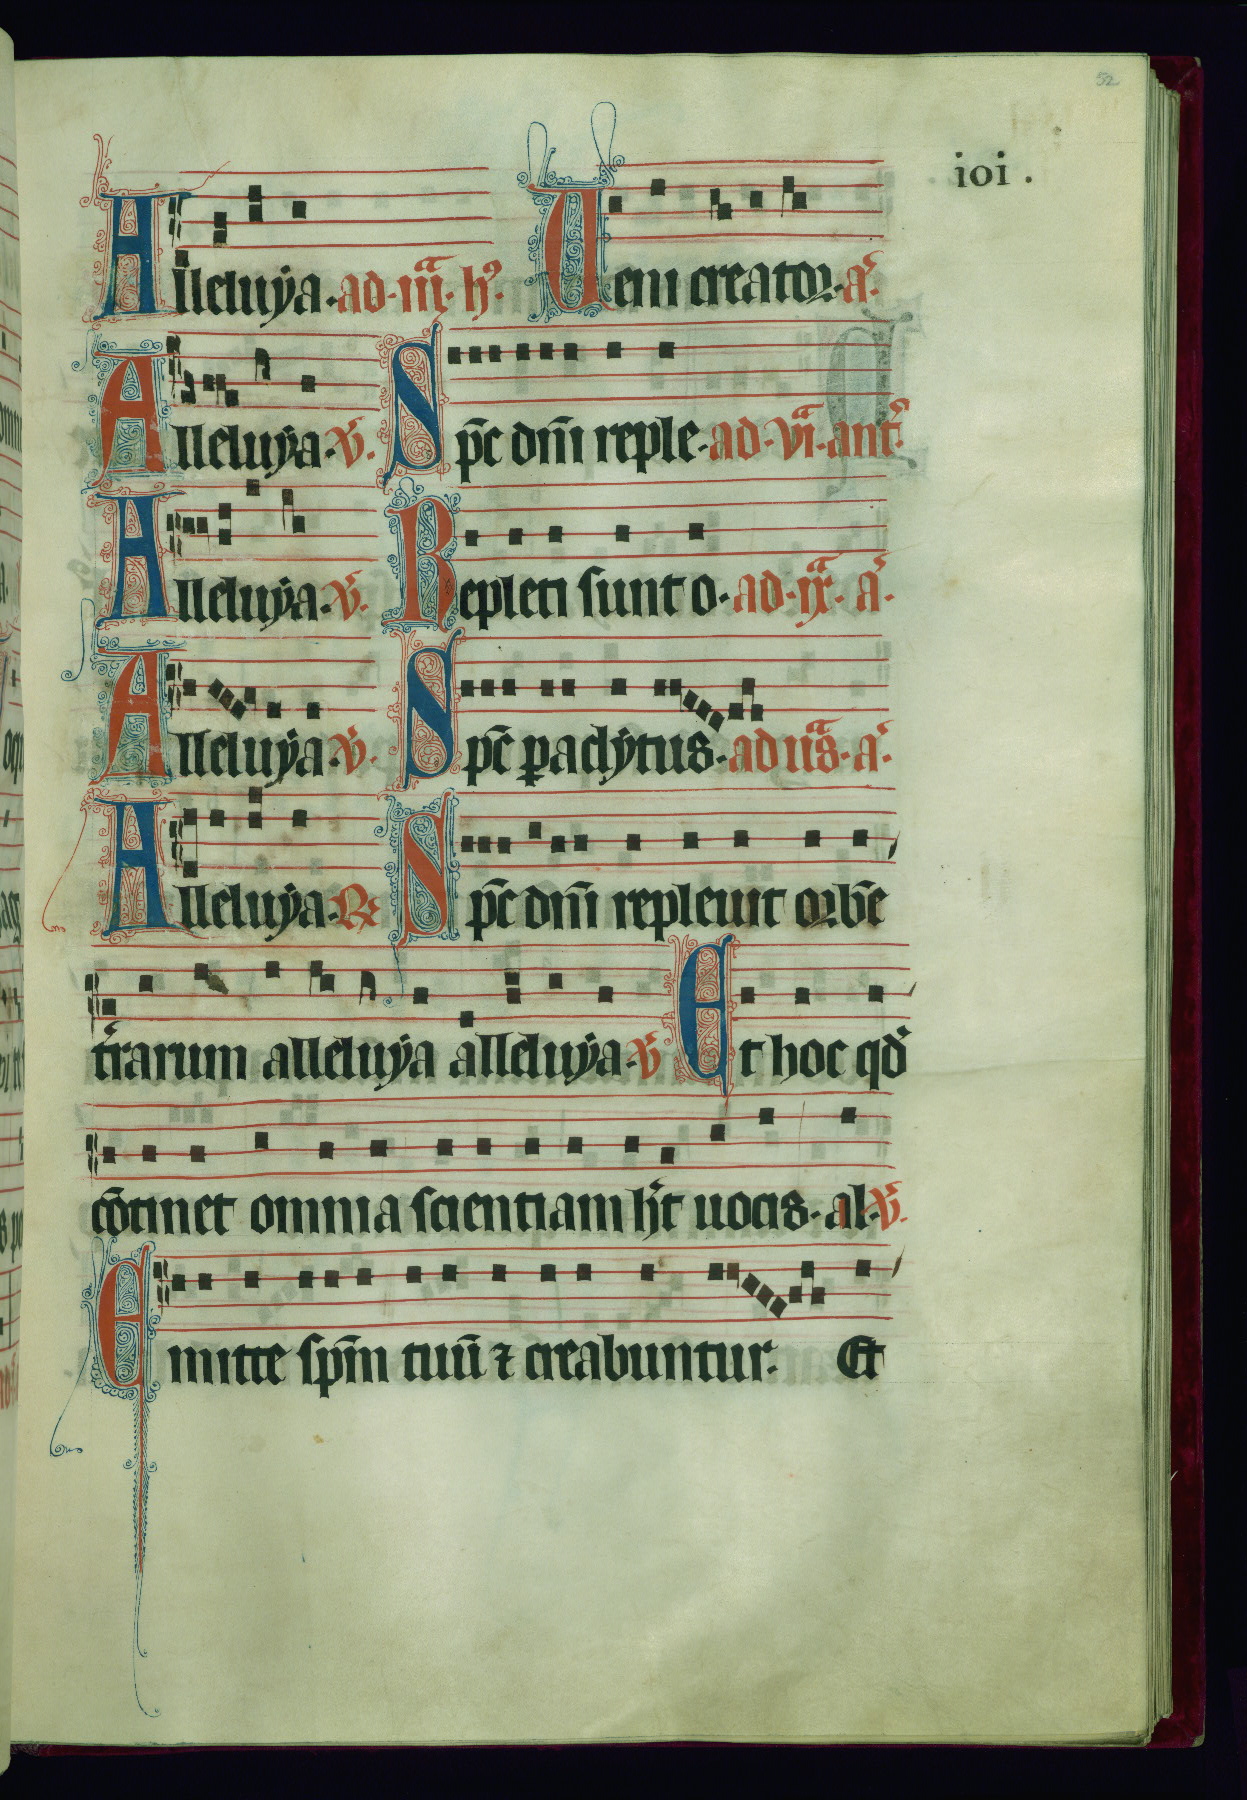 52
ioi.
Alleluẏa. ad. iii.ᵃ h⁹. Ueni creator. aͬ.
Alleluẏa. v̓. Sp̄c dn̄i reple. ad. vi.ᵃ antͬ.
Alleluẏa. v̓. Repleti sunt o. ad. ix.ᵃ aͬ.
Alleluẏa. v̓. Sp̄c ꝑaclẏtus. ad uᵃs. aͬ.
Alleluẏa. ℞ Sp̄c dn̄i repleuit orbē
t̓rarum alleluẏa alleluẏa. v̓ Et hoc qd̓
cōtinet omnia scientiam h̓t uocis. al. v̓.
Emitte sp̄m tuū ⁊ creabuntur. Et